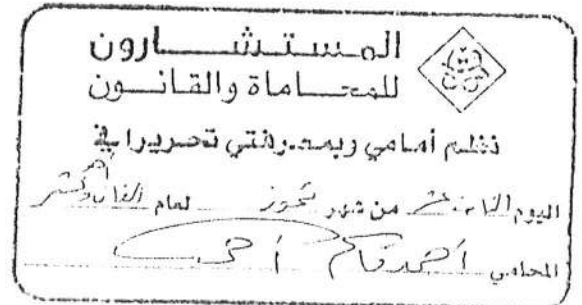 المستشارون
للمحاماة والقانون
نظم أمامي وبمعرفتي تحريرا في
اليوم الثامن عشر من شهر تموز لعام
المحامي أحمد